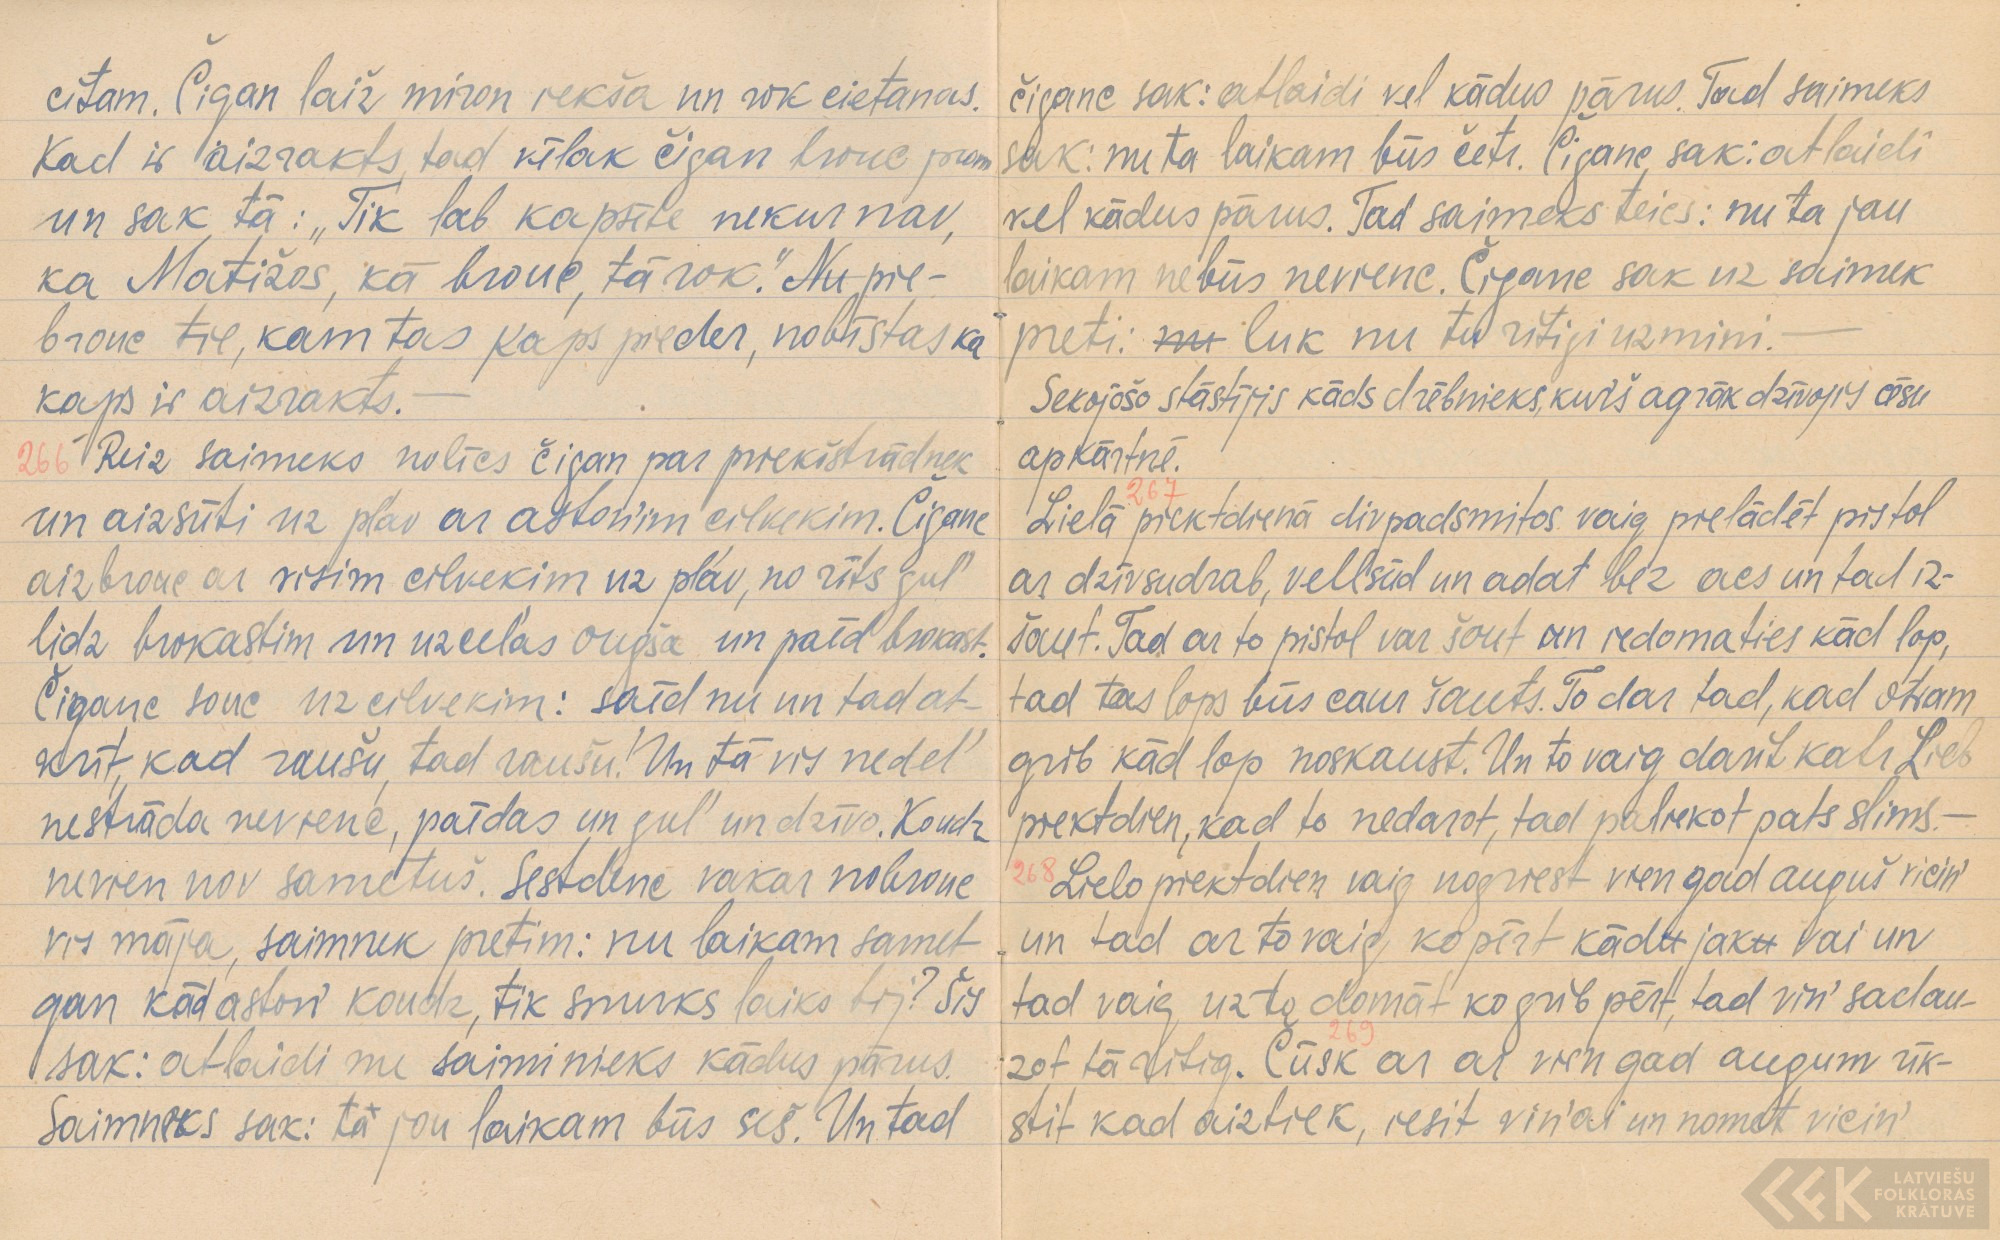 citam. Čigan laiž miron iekša un rok cietanas.
Kad ir aizrakts, tad vīlak čigan brouc prom
un sak tā: „Tik lab kapsēte nekur nav,
ka Matižos, kā brouc, tā rok." Nu pie-
brouc tie, kam tas kaps pieder, nobīstas ka
kaps ir aizrakts. —
266 Reiz saimeks nolīcs čigan par priekištrādnek
un aizsūti uz pļav ar astoņim cilvekim. Čigane
aizbrouc ar visim cilvekim uz pļav, no rīts guļ
lidz brokastim un uzceļas ougša un paēd brokast.
Čigane souc uz cilvekim: saēd nu un tad at-
krīt, kad raušu, tad raušu! Un tā vis nedeļ
nestrāda neviene, paēdas un guļ un dzīvo. Koudz
nevien nov sametuš. Sestdene vakar nobrouc
vis māja, saimnek pretim: nu laikam samet
gan kād astoņ koudz, tik smurks laiks bij? Šis
sak: atlaidi nu saiminieks kādus pārus.
Saimneks sak: tā jou laikam būs seš. Un tad
čigane sak: atlaidi vel kādus pārus. Tad saimeks
sak: nu ta laikam būs četr. Čigane sak: atlaidi
vel kādus pārus. Tad saimeks teics: nu ta jau
laikam nebūs neviene. Čigane sak uz saimek
preti: nu luk nu tu ritigi uzmini. —
Sekojōšo stāstījis kāds drēbnieks, kuŗš agrāk dzīvojis cēsu
apkārtnē.
267
Lielā piektdienā divpadsmitos vaig pielādēt pistol
ar dzīvsudrab, vellsūd un adat bez acs un tad iz-
šaut. Tad ar to pistol var šout un iedomaties kād lop,
tad tas lops būs caur šauts. To dar tad, kad otram
grib kād lop noskaust. Un to vaig darit katr Liel
piektdien, kad to nedarot, tad paliekot pats slims. —
268 Lielo piektdien vaig nogriest vien gad auguš viciņ
un tad ar to vaig kopērt kādu jaku vai un
tad vaig uz to domāt ko grib pērt, tad viņ sadau-
269
zot tā ritig. Čūsk ar ar vien gad augum rīk-
stit kad aiztiek, iesit viņai un nomet viciņ